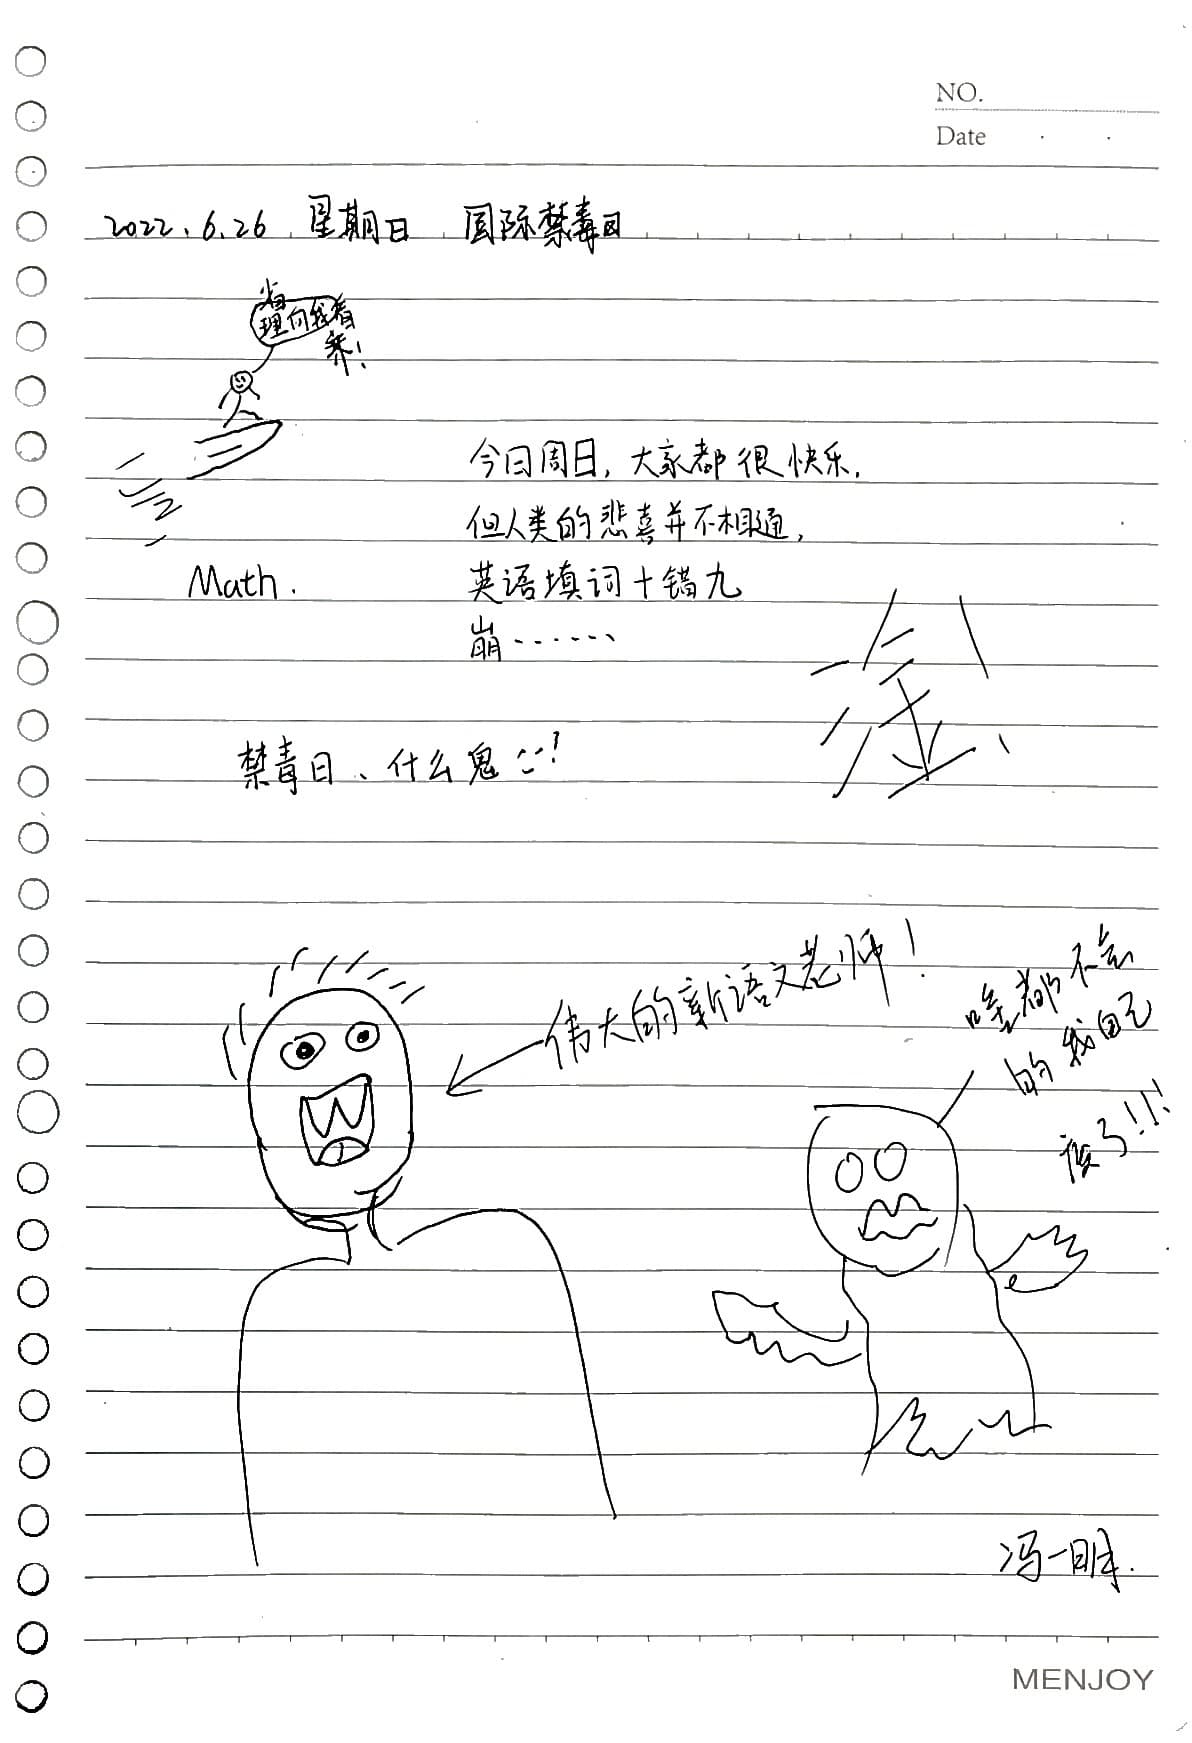 NO.
Date
2022.6.26 星期日 国际禁毒日
理向我看
乘!
今日周日,大家都很快乐.
但人类的悲喜并不相通,
Math.
英语填词十错九
崩……
禁毒日、什么鬼 !
伟大的新语文老师!
啥都不会
的我自己
疯了!!!
冯一明.
MENJOY